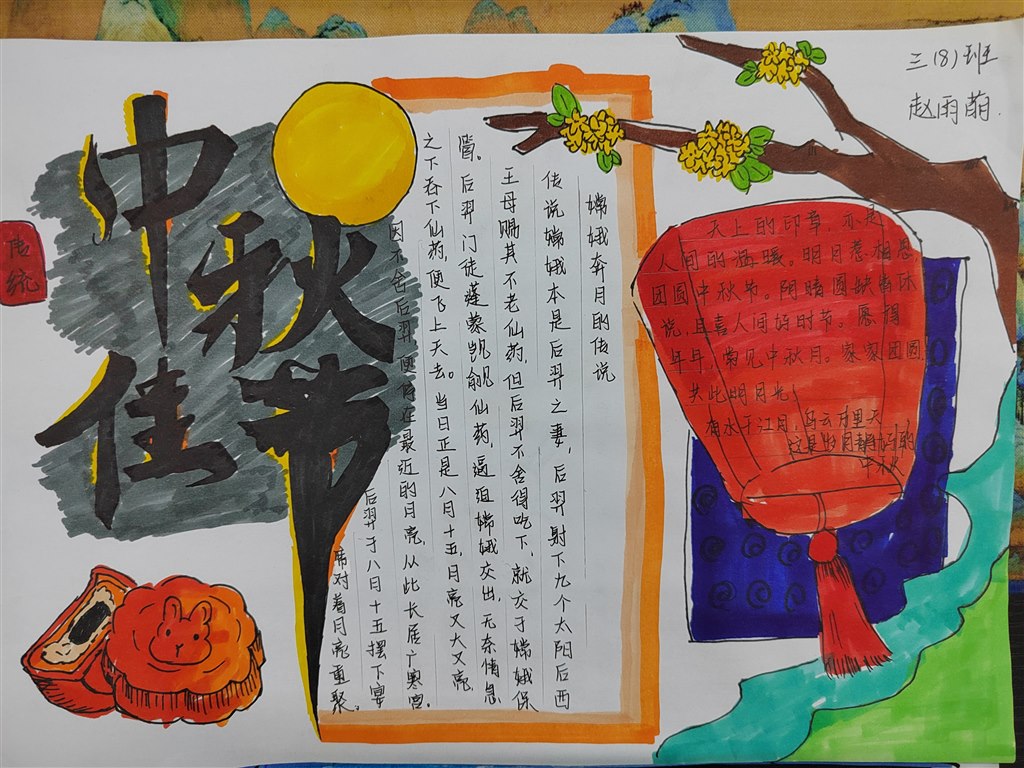 三(8)班
赵雨萌.
中秋
佳节
传统
嫦娥奔月的传说
传说嫦娥本是后羿之妻,后羿射下九个太阳后西
王母赐其不老仙药,但后羿不舍得吃下,就交于嫦娥保
管。后羿门徒蓬蒙觊觎仙药,逼迫嫦娥交出,无奈情急
之下吞下仙药,便飞上天去。当日正是八月十五,月亮又大又亮
因不舍后羿便停在最近的月亮,从此长居广寒宫.
后羿于八月十五摆下宴
席对着月亮重聚。
天上的印章,亦是
人间的温暖。明月惹相思,
团圆中秋节。阴晴圆缺皆休
说,且喜人间好时节。愿得
年年,常见中秋月。家家团圆
共此明月光!
有水千江月,乌云万里天
这是岁月静好的
中秋